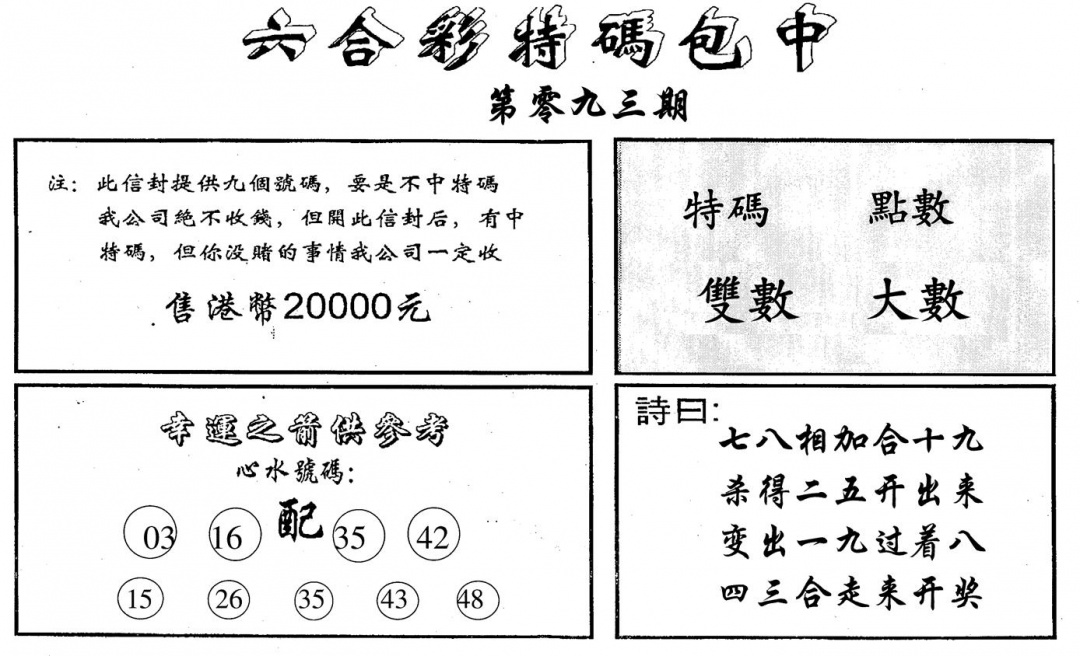 六合彩特碼包中
第零九三期
注：此信封提供九個號碼，要是不中特碼
我公司絕不收錢，但開此信封后，有中
特碼，但你没賭的事情我公司一定收
售港幣20000元
特碼 點數
雙數 大數
幸運之箭供參考
心水號碼：
03 16 配 35 42
15 26 35 43 48
詩曰：
七八相加合十九
杀得二五开出来
变出一九过着八
四三合走来开奖